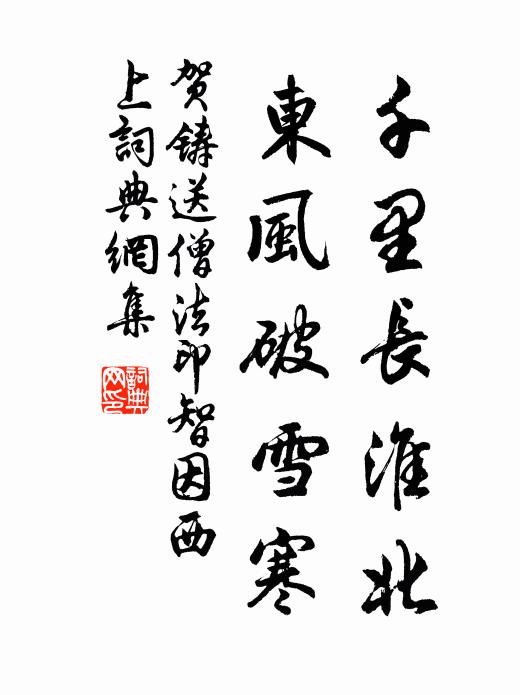 千里長淮北
東風破雪寒
贺鑄送僧法印智因西
上詞典網集
詞典
网印